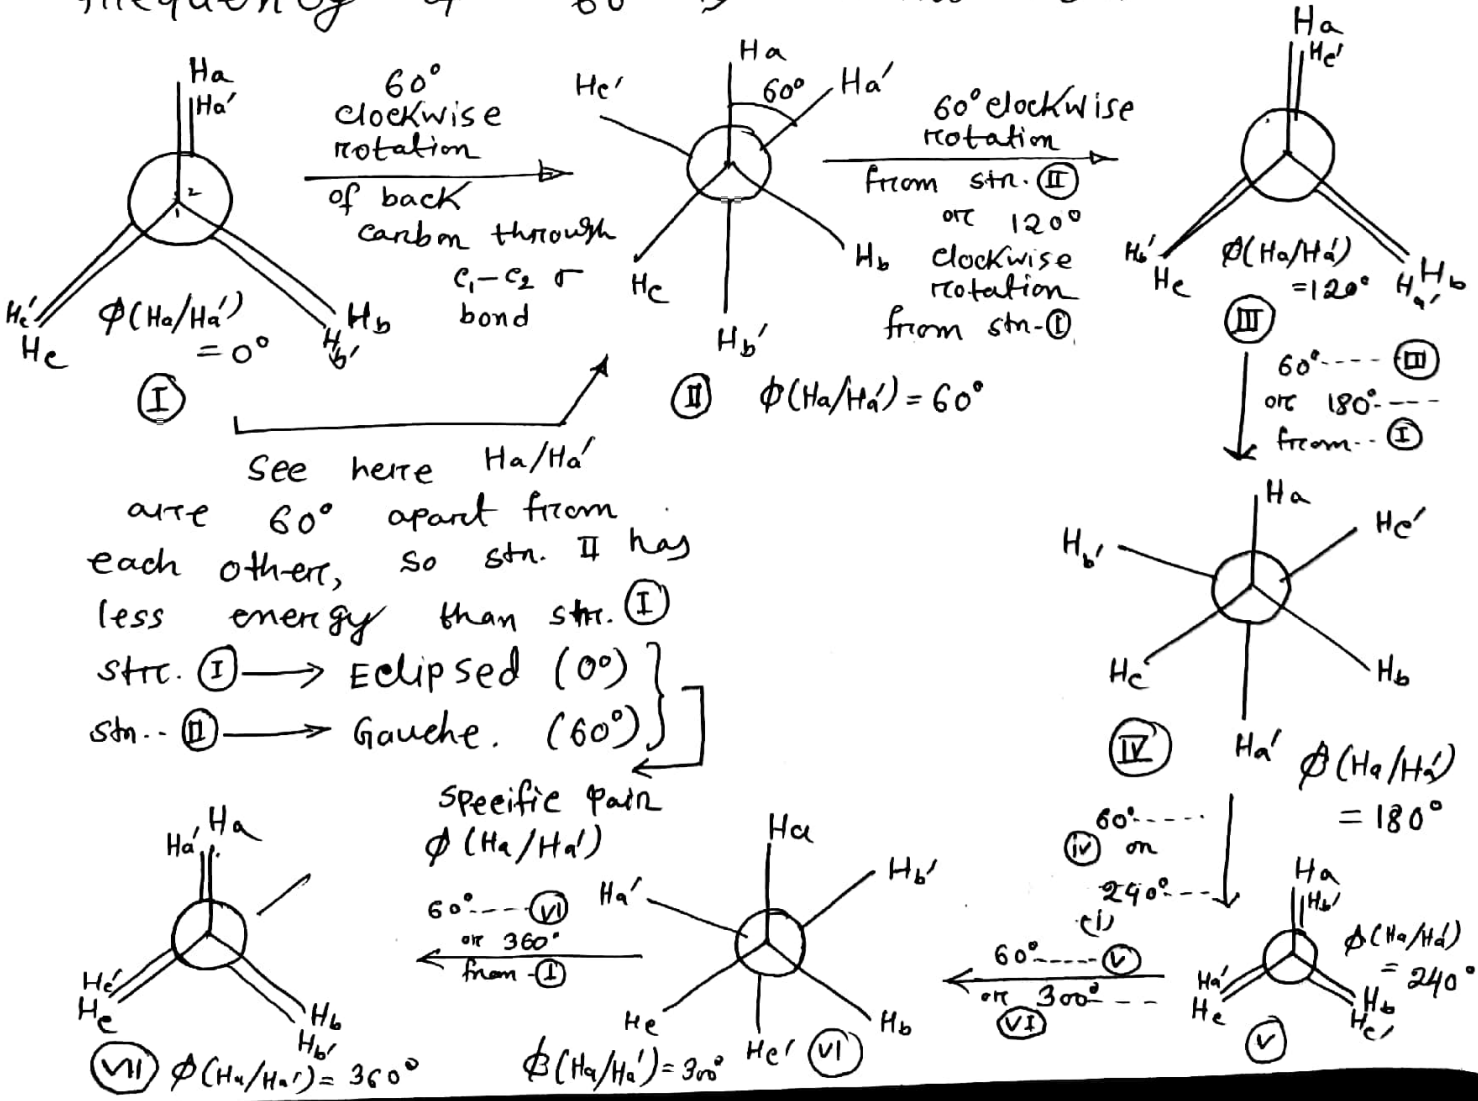 frequency of 60° is
Ha
Ha'
2
1
Hc'
Hc
Hb
Hb'
φ(Ha/Ha')
= 0°
I
60°
clockwise
rotation
of back
carbon through
C₁-C₂ σ
bond
Ha
60°
Ha'
Hc'
Hc
Hb
Hb'
II φ(Ha/Ha') = 60°
60° clockwise
rotation
from str. II
or 120°
clockwise
rotation
from str-I
Ha
Hc'
Hb'
Hc
Hb
Ha'
φ(Ha/Ha')
=120°
III
60°---- III
or 180°----
from-- I
See here Ha/Ha'
are 60° apart from
each other, so str. II has
less energy than str. I
str. I → Eclipsed (0°)
str.. II → Gauche. (60°)
Specific pair
φ (Ha/Ha')
Ha
Hc'
Hb'
Hc
Hb
Ha'
IV
φ(Ha/Ha')
= 180°
60°-----
iv or
240°----
(i)
Ha
Hb'
Ha'
Hc
Hb
Hc'
φ(Ha/Ha')
= 240°
V
60°----- V
or 300°---
VI
Ha
Ha'
Hb'
Hc
Hb
Hc'
VI
φ(Ha/Ha')= 300°
60°---- VI
or 360°
from - I
Ha
Ha'
Hc'
Hc
Hb
Hb'
VII φ(Ha/Ha')= 360°